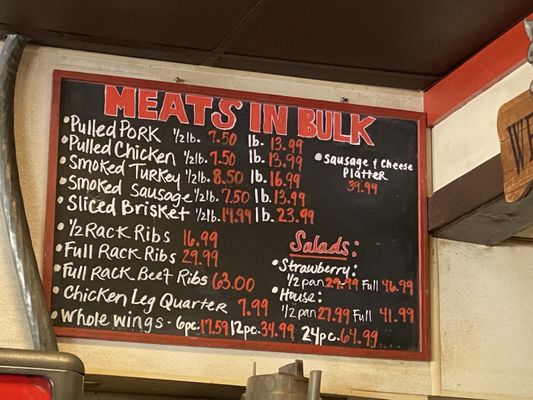 MEATS IN BULK
• Pulled Pork 1/2 lb. 7.50 lb. 13.99
• Pulled Chicken 1/2 lb. 7.50 lb. 13.99
• Smoked Turkey 1/2 lb. 8.50 lb. 16.99
• Smoked Sausage 1/2 lb. 7.50 lb. 13.99
• Sliced Brisket 1/2 lb. 14.99 lb. 23.99
• 1/2 Rack Ribs 16.99
• Full Rack Ribs 29.99
• Full Rack Beef Ribs 63.00
• Chicken Leg Quarter 7.99
• Whole wings - 6pc. 17.59 12pc. 34.99 24pc. 64.99
• Sausage & Cheese
Platter
39.99
Salads:
• Strawberry:
1/2 pan 29.99 Full 46.99
• House:
1/2 pan 27.99 Full 41.99